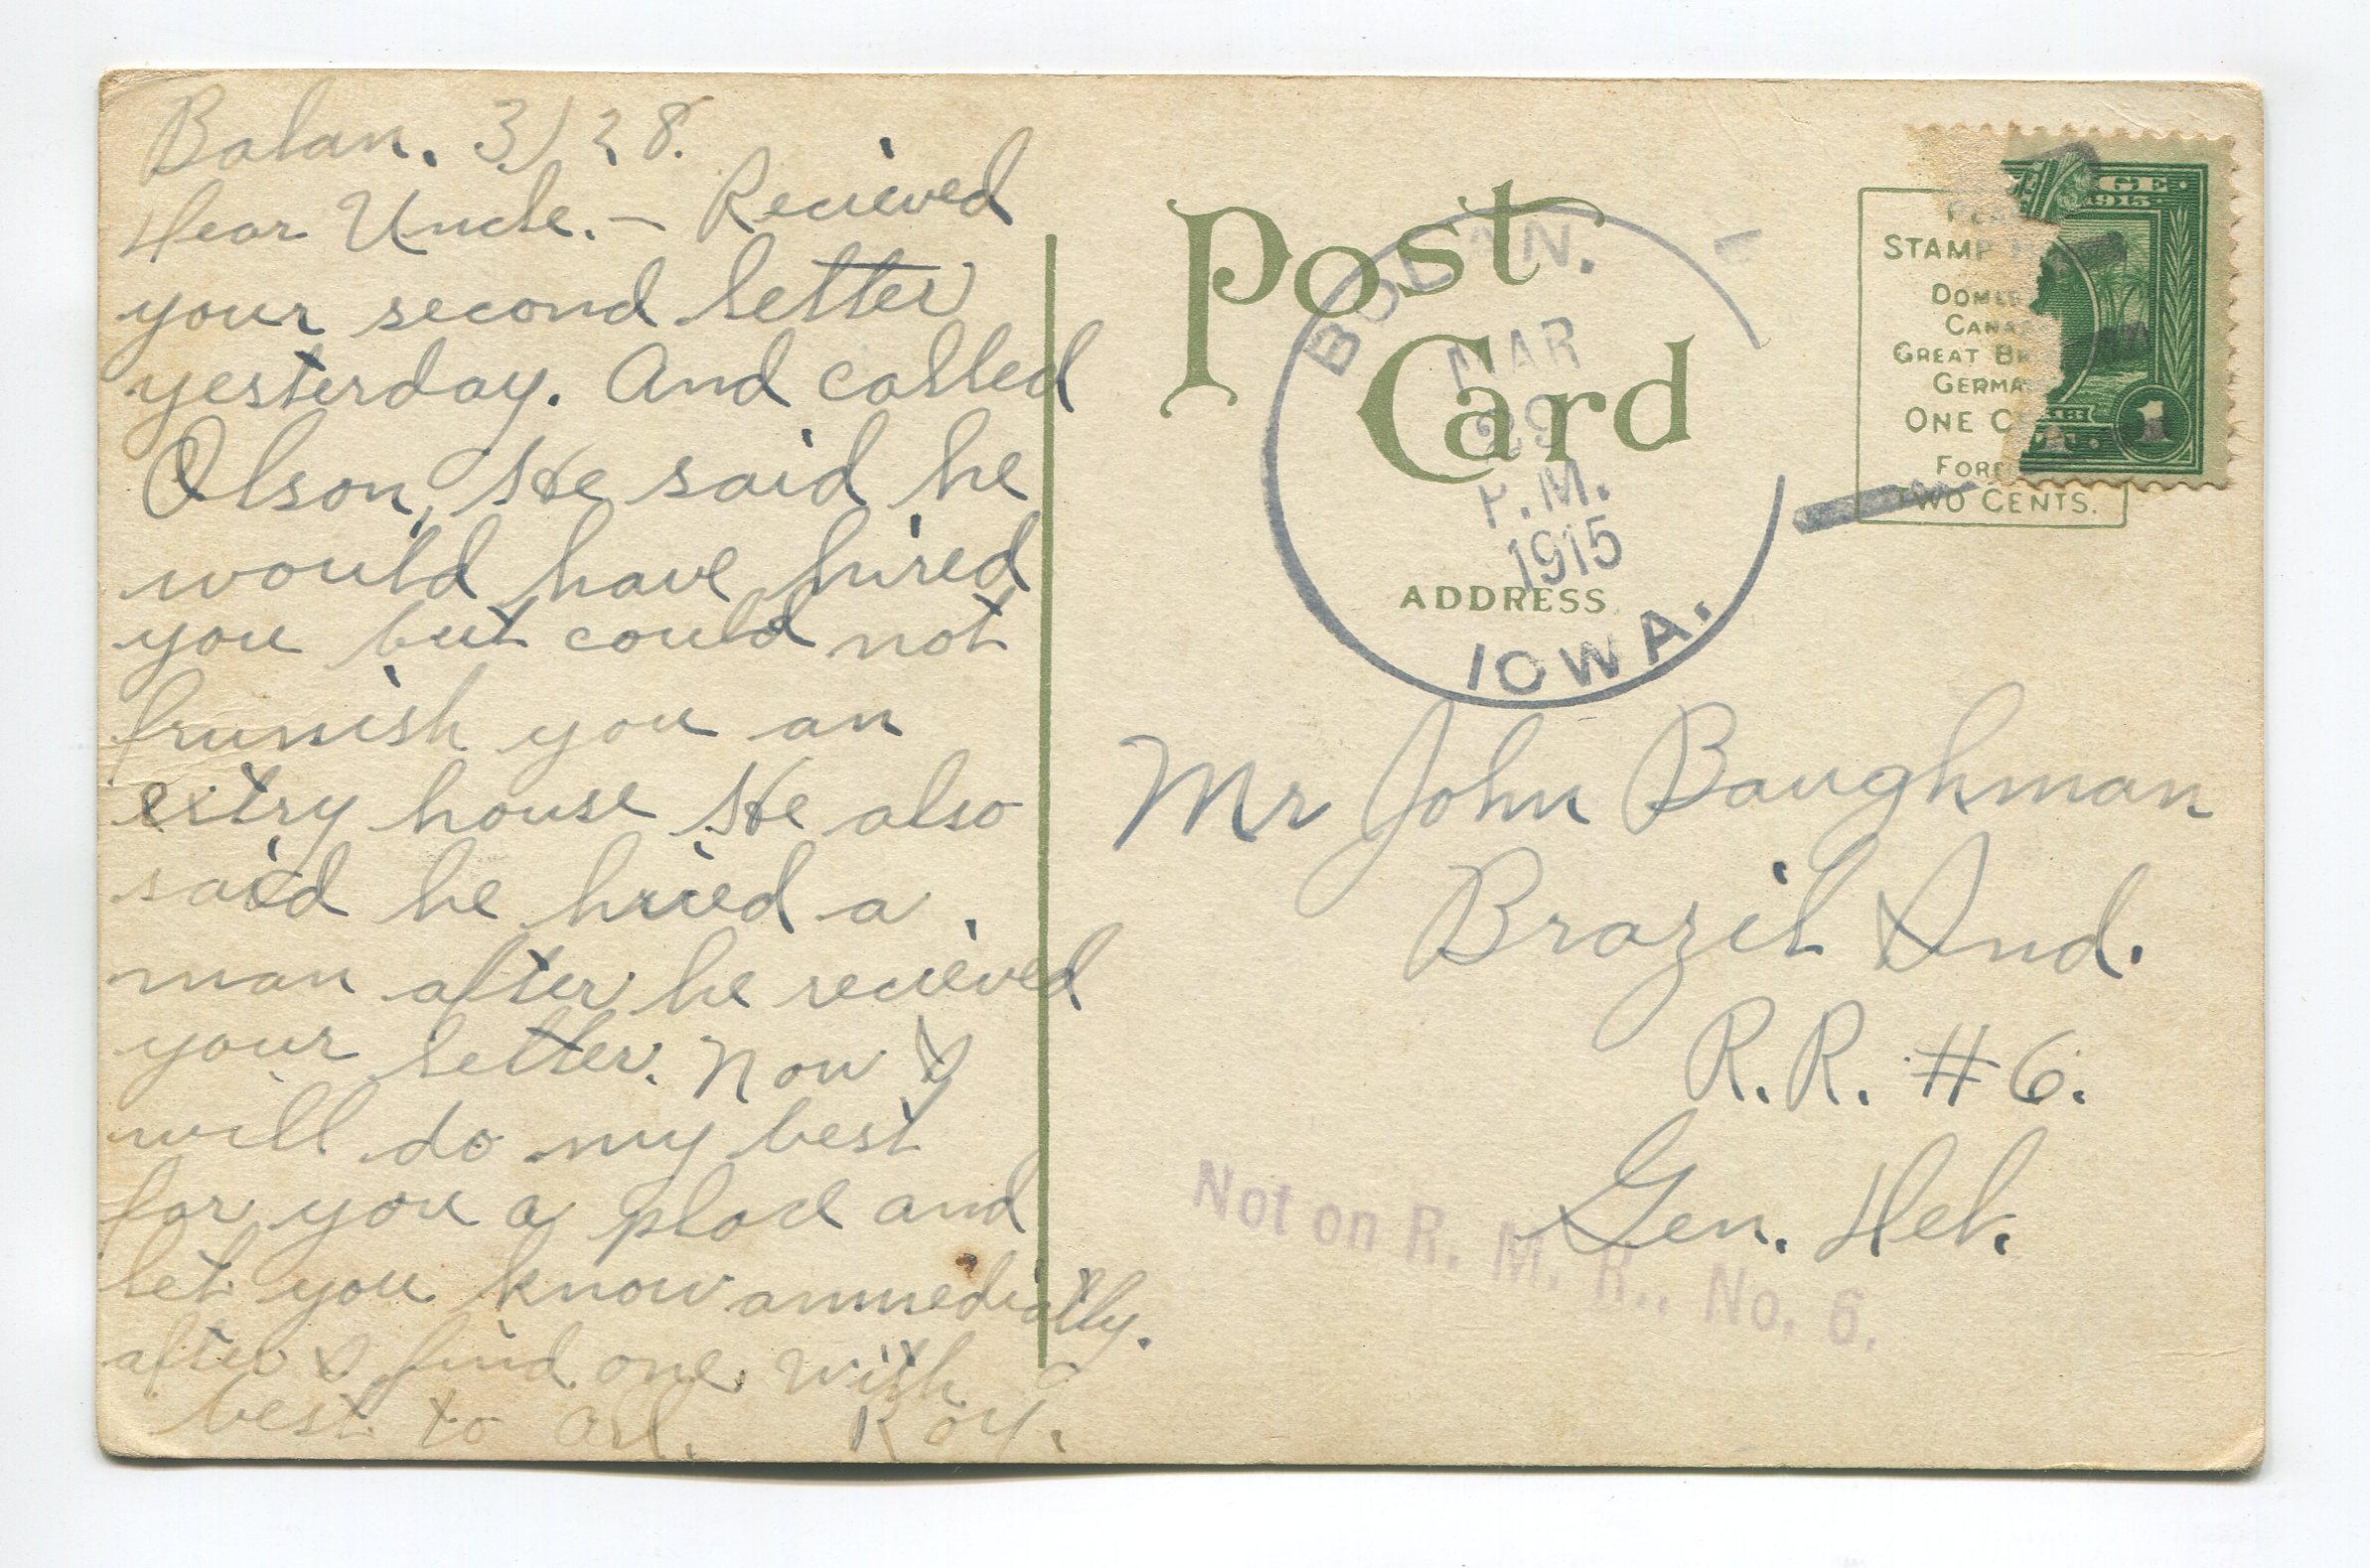 Bolan. 3/28.
Dear Uncle. - Recieved
your second letter
yesterday. And called
Olson, He said he
would have hired
you but could not
frunish you an
extry house He also
said he hried a
man after he recieved
your letter. Now I
will do my best
for you a place and
let you know ammedially.
after I find one. With
best to all. Roy.
Post
Card
ADDRESS
BOLAN.
MAR
29
P.M.
1915
IOWA.
STAMP
GREAT
ONE
TWO CENTS.
1915
1
Mr John Baughman
Brazil Ind.
R.R. #6.
Gen. Del.
Not on R. M. R., No. 6.